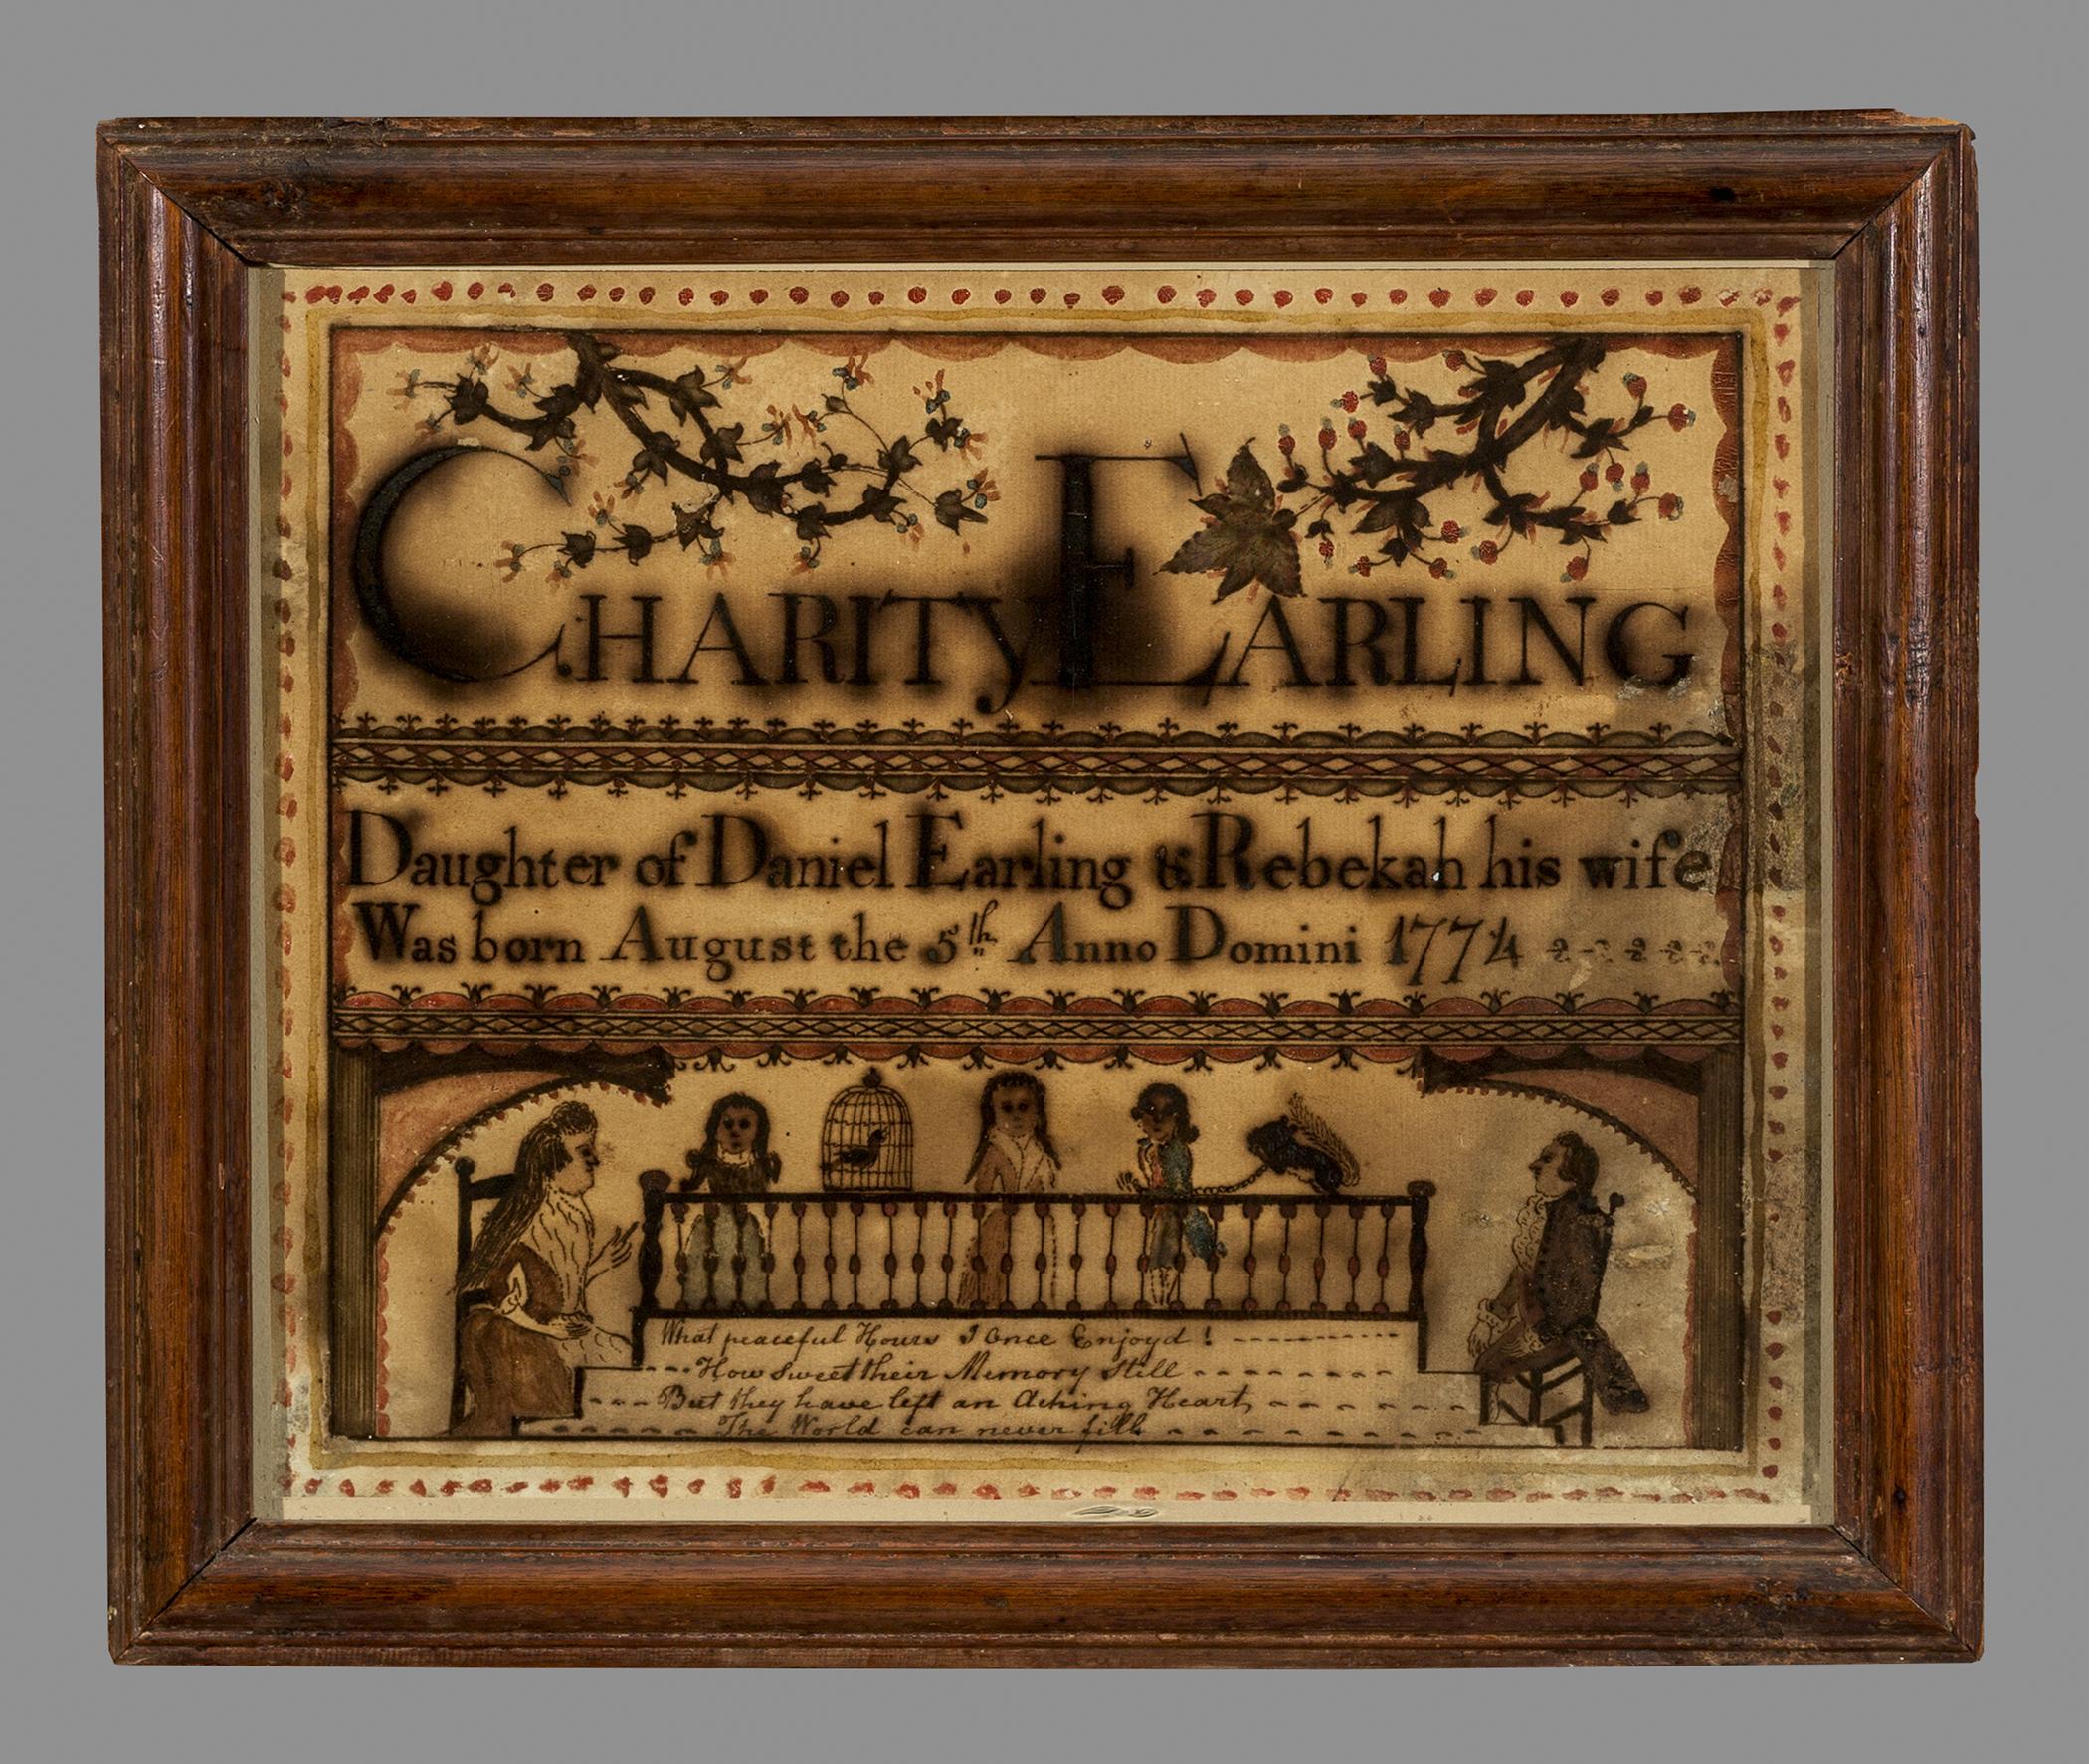 CHARITY EARLING
Daughter of Daniel Earling & Rebekah his wife
Was born August the 5th Anno Domini 1774
What peaceful Hours I once Enjoyd !
How sweet their Memory Still
But they have left an Aching Heart
The World can never fill